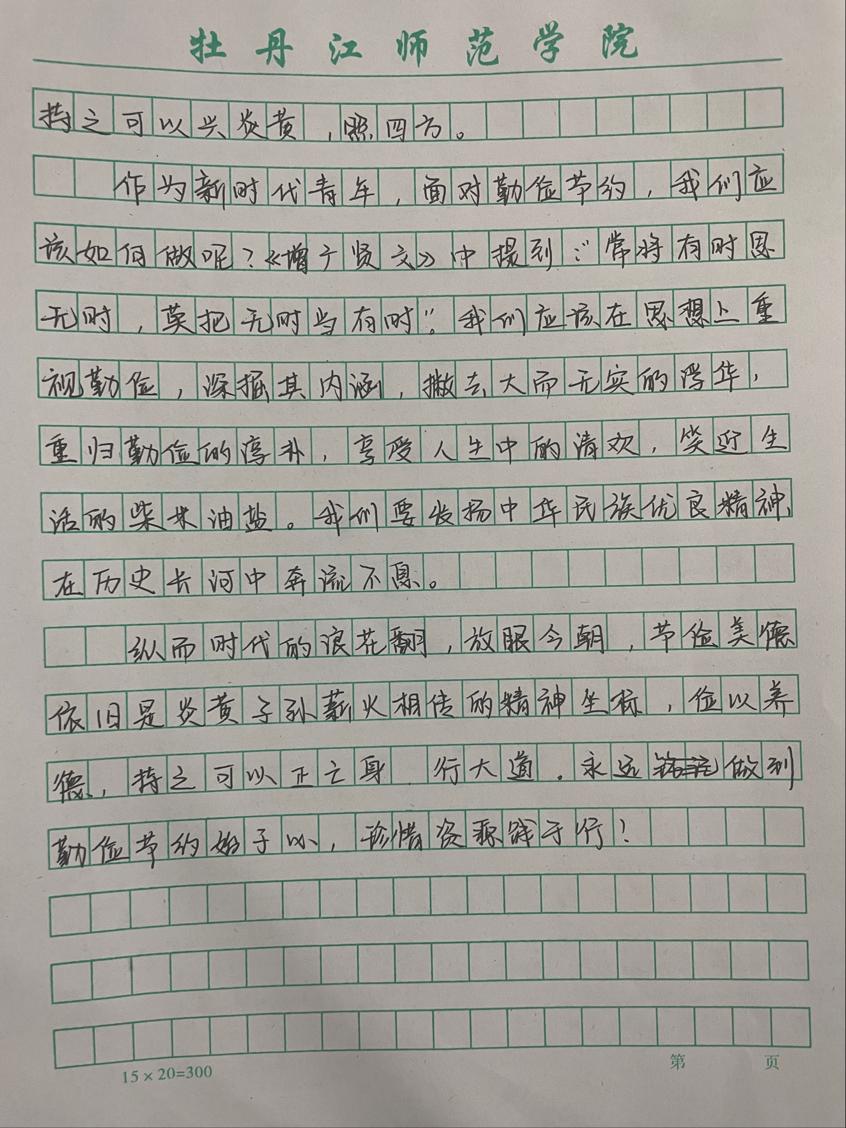 牡丹江师范学院
持之可以兴炎黄，照四方。
作为新时代青年，面对勤俭节约，我们应
该如何做呢？《增广贤文》中提到：“常将有时思
无时，莫把无时当有时”。我们应该在思想上重
视勤俭，深掘其内涵，撇去大而无实的浮华，
重归勤俭的淳朴，享受人生中的清欢，笑迎生
活的柴米油盐。我们要发扬中华民族优良精神，
在历史长河中奔流不息。
纵而时代的浪花翻，放眼今朝，节俭美德
依旧是炎黄子孙薪火相传的精神坐标，俭以养
德，持之可以正己身，行大道。永远做到
勤俭节约始于心，珍惜资源践于行！
15×20=300
第 页